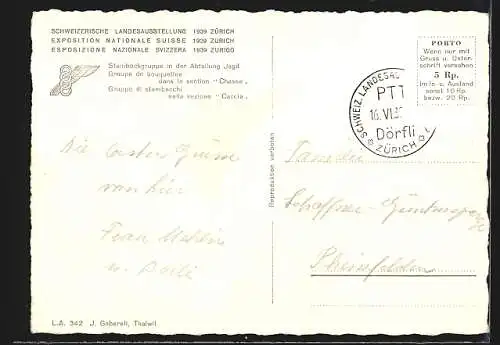 SCHWEIZERISCHE LANDESAUSSTELLUNG 1939 ZÜRICH
EXPOSITION NATIONALE SUISSE 1939 ZURICH
ESPOSIZIONE NAZIONALE SVIZZERA 1939 ZURIGO
Steinbockgruppe in der Abteilung Jagd
Groupe de bouquetins
dans la section "Chasse"
Gruppo di stambecchi
nella sezione "Caccia"
PORTO
Wenn nur mit
Gruss u. Unter-
schrift versehen
5 Rp.
Im In- u. Ausland
sonst 10 Rp.
bezw. 20 Rp.
SCHWEIZ. LANDESAUS
PTT
16.VI.39
Dörfli
ZÜRICH
Die ersten Grüsse
von hier
Frau
u.
Reproduktion verboten
Familie
Schaffner-
Rheinfelden
L.A. 342 J. Gaberell, Thalwil